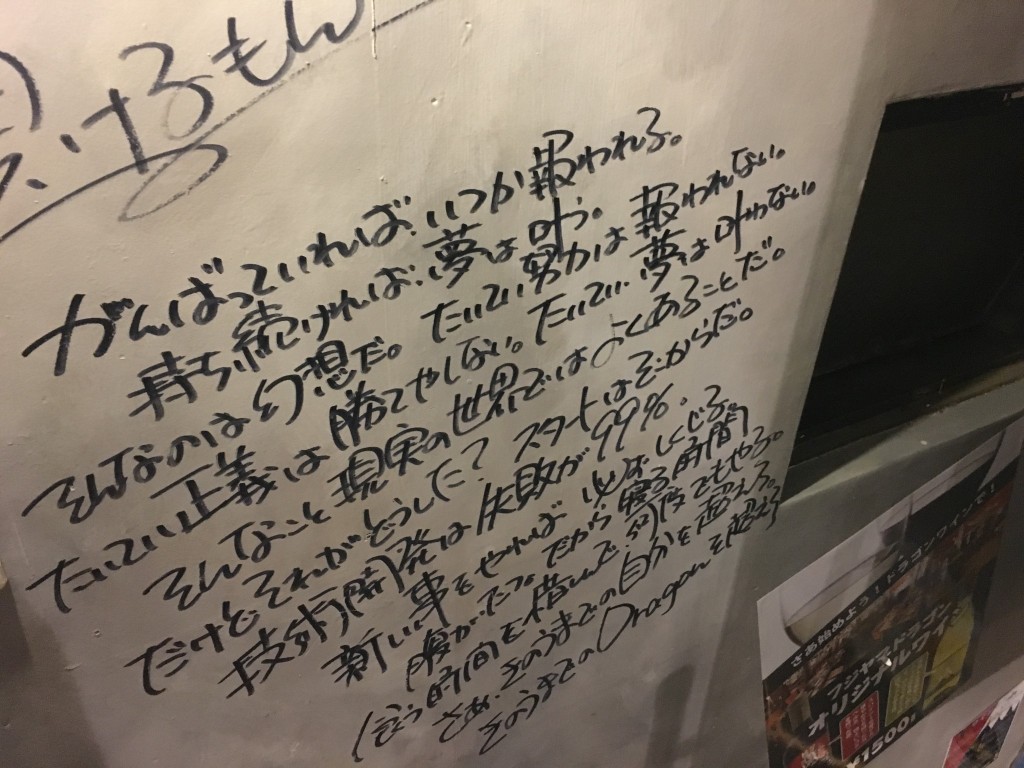 けるもん
がんばっていれば、いつか報われる。
持ち続ければ、夢は叶う。
そんなのは幻想だ。たいてい努力は報われない。
たいてい正義は勝てやしない。たいてい夢は叶わない。
そんなこと現実の世界ではよくあることだ。
だけどそれがどうした?スタートはそこからだ。
技術開発は失敗が99%.
新しい事をやれば必ずしくじる。
腹がたつ。だから寝る時間
食う時間を惜しんで何度でもやる。
さあ、きのうまでの自分を超えろ。
きのうまでのDragonを超えろ
さあ始めよう!ドラゴンワインで!
フジヤマドラゴン
オリジナル
¥1500